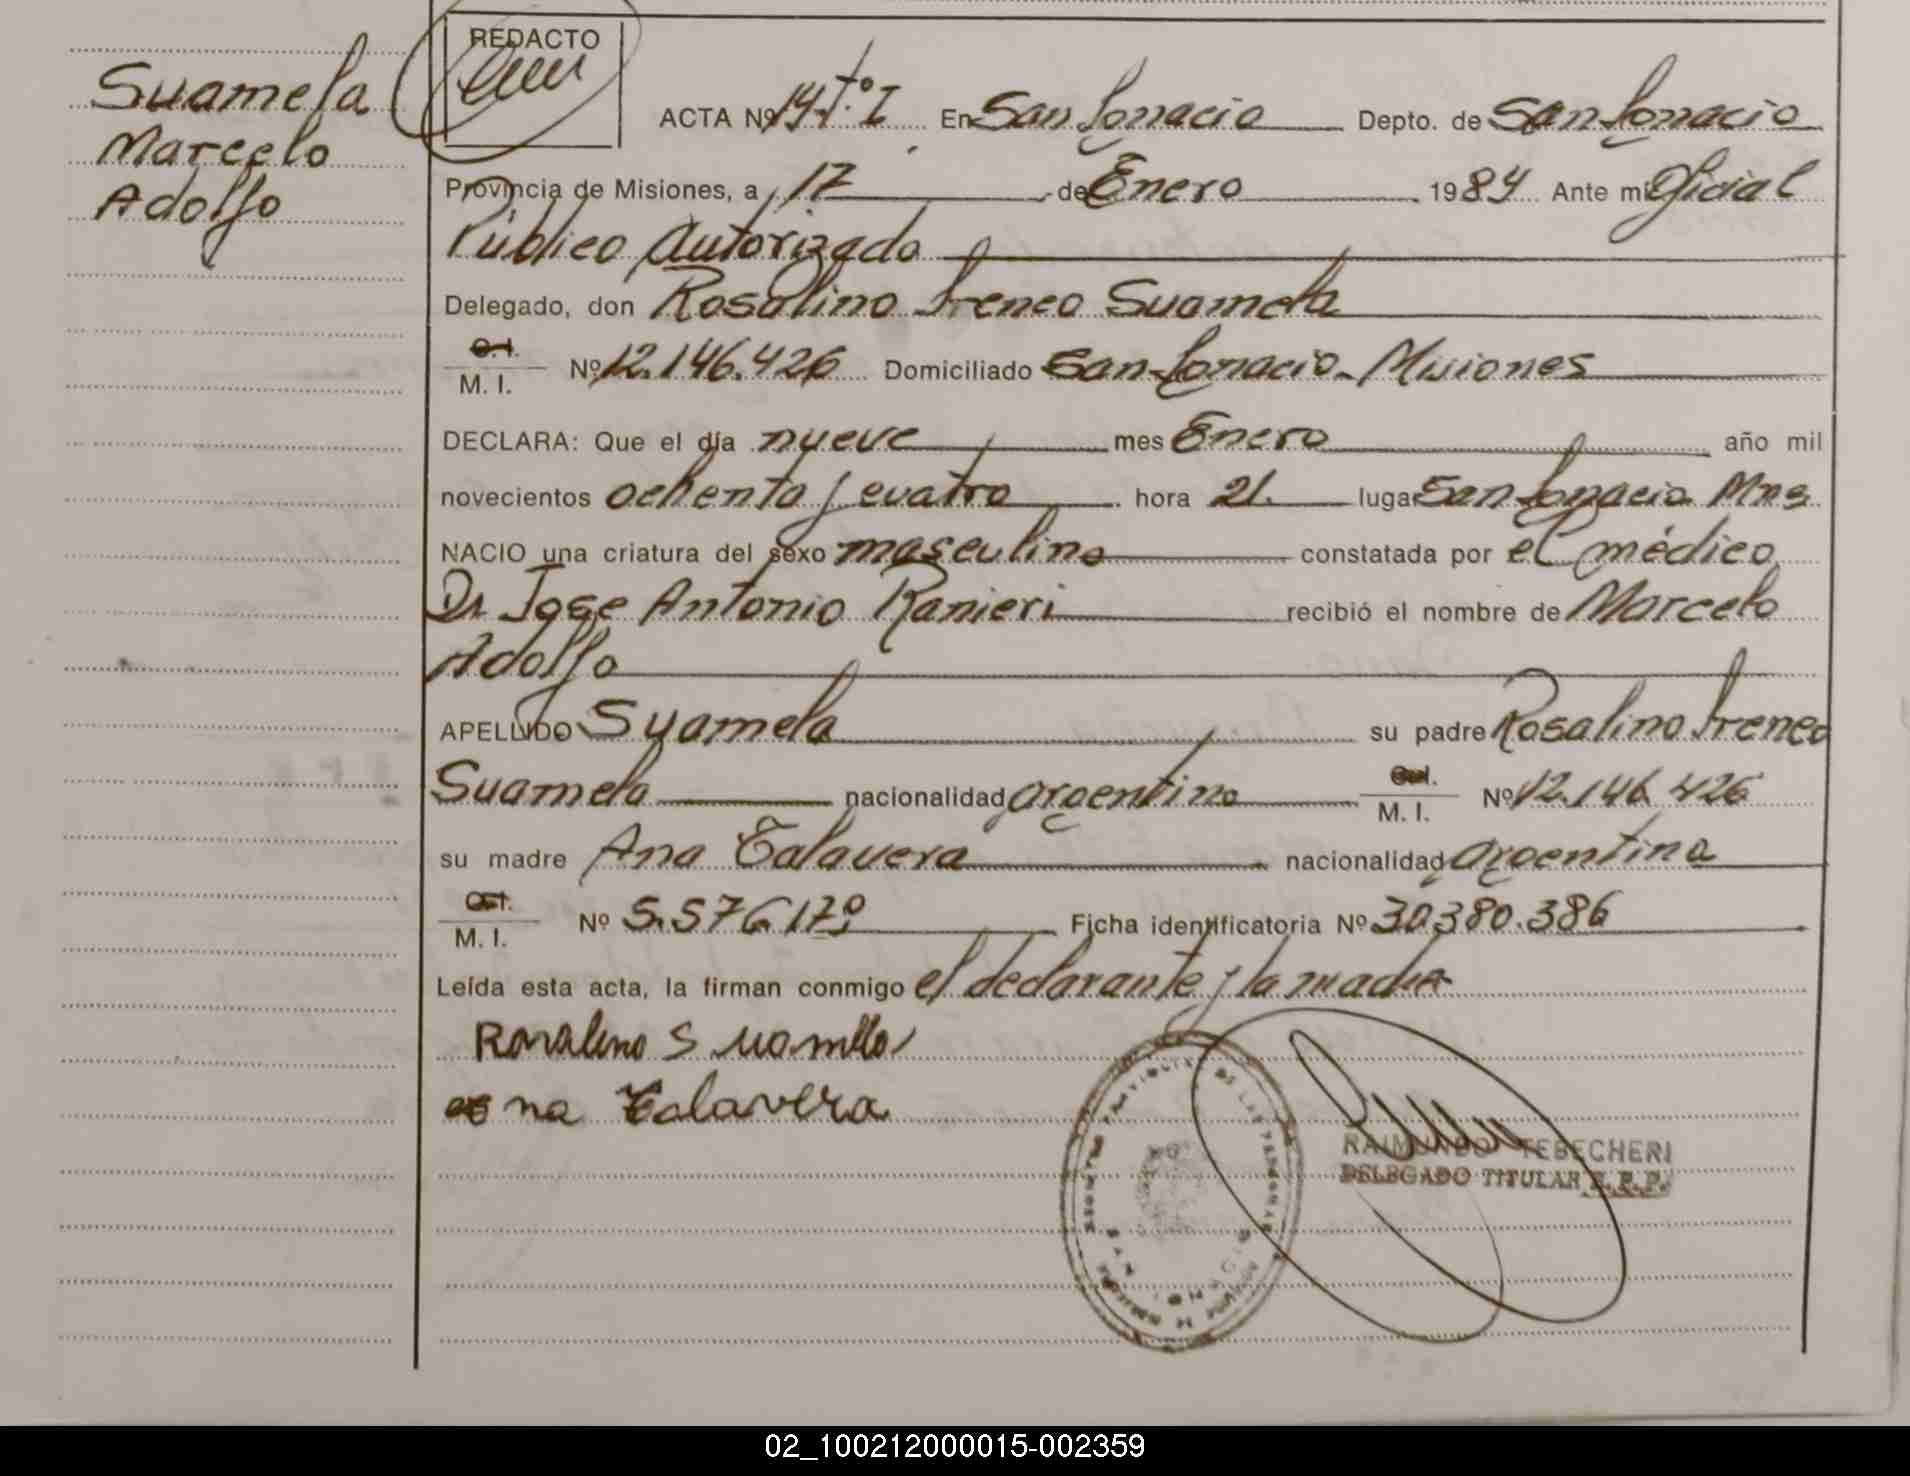 Suamela
Marcelo
Adolfo
REDACTO
ACTA Nº 14 Tº I En San Ignacio Depto. de San Ignacio
Provincia de Misiones, a 17 de Enero 1984 Ante mi Oficial
Público Autorizado
Delegado, don Rosalino Ireneo Suamela
C.I.
M. I. Nº 12.146.426 Domiciliado San Ignacio - Misiones
DECLARA: Que el día nueve mes Enero año mil
novecientos ochenta y cuatro hora 21. lugar San Ignacio Mns
NACIO una criatura del sexo masculino constatada por el médico
Dr Jose Antonio Ranieri recibió el nombre de Marcelo
Adolfo
APELLIDO Suamela su padre Rosalino Ireneo
Suamela nacionalidad argentino M. I. Nº 12.146.426
su madre Ana Talavera nacionalidad argentina
M. I. Nº 5.576.170 Ficha identificatoria Nº 30.380.386
Leída esta acta, la firman conmigo el declarante y la madre
Rosalino Suamela
ana Talavera
RAIMUNDO TEBECHERI
DELEGADO TITULAR R.P.P.
02_100212000015-002359